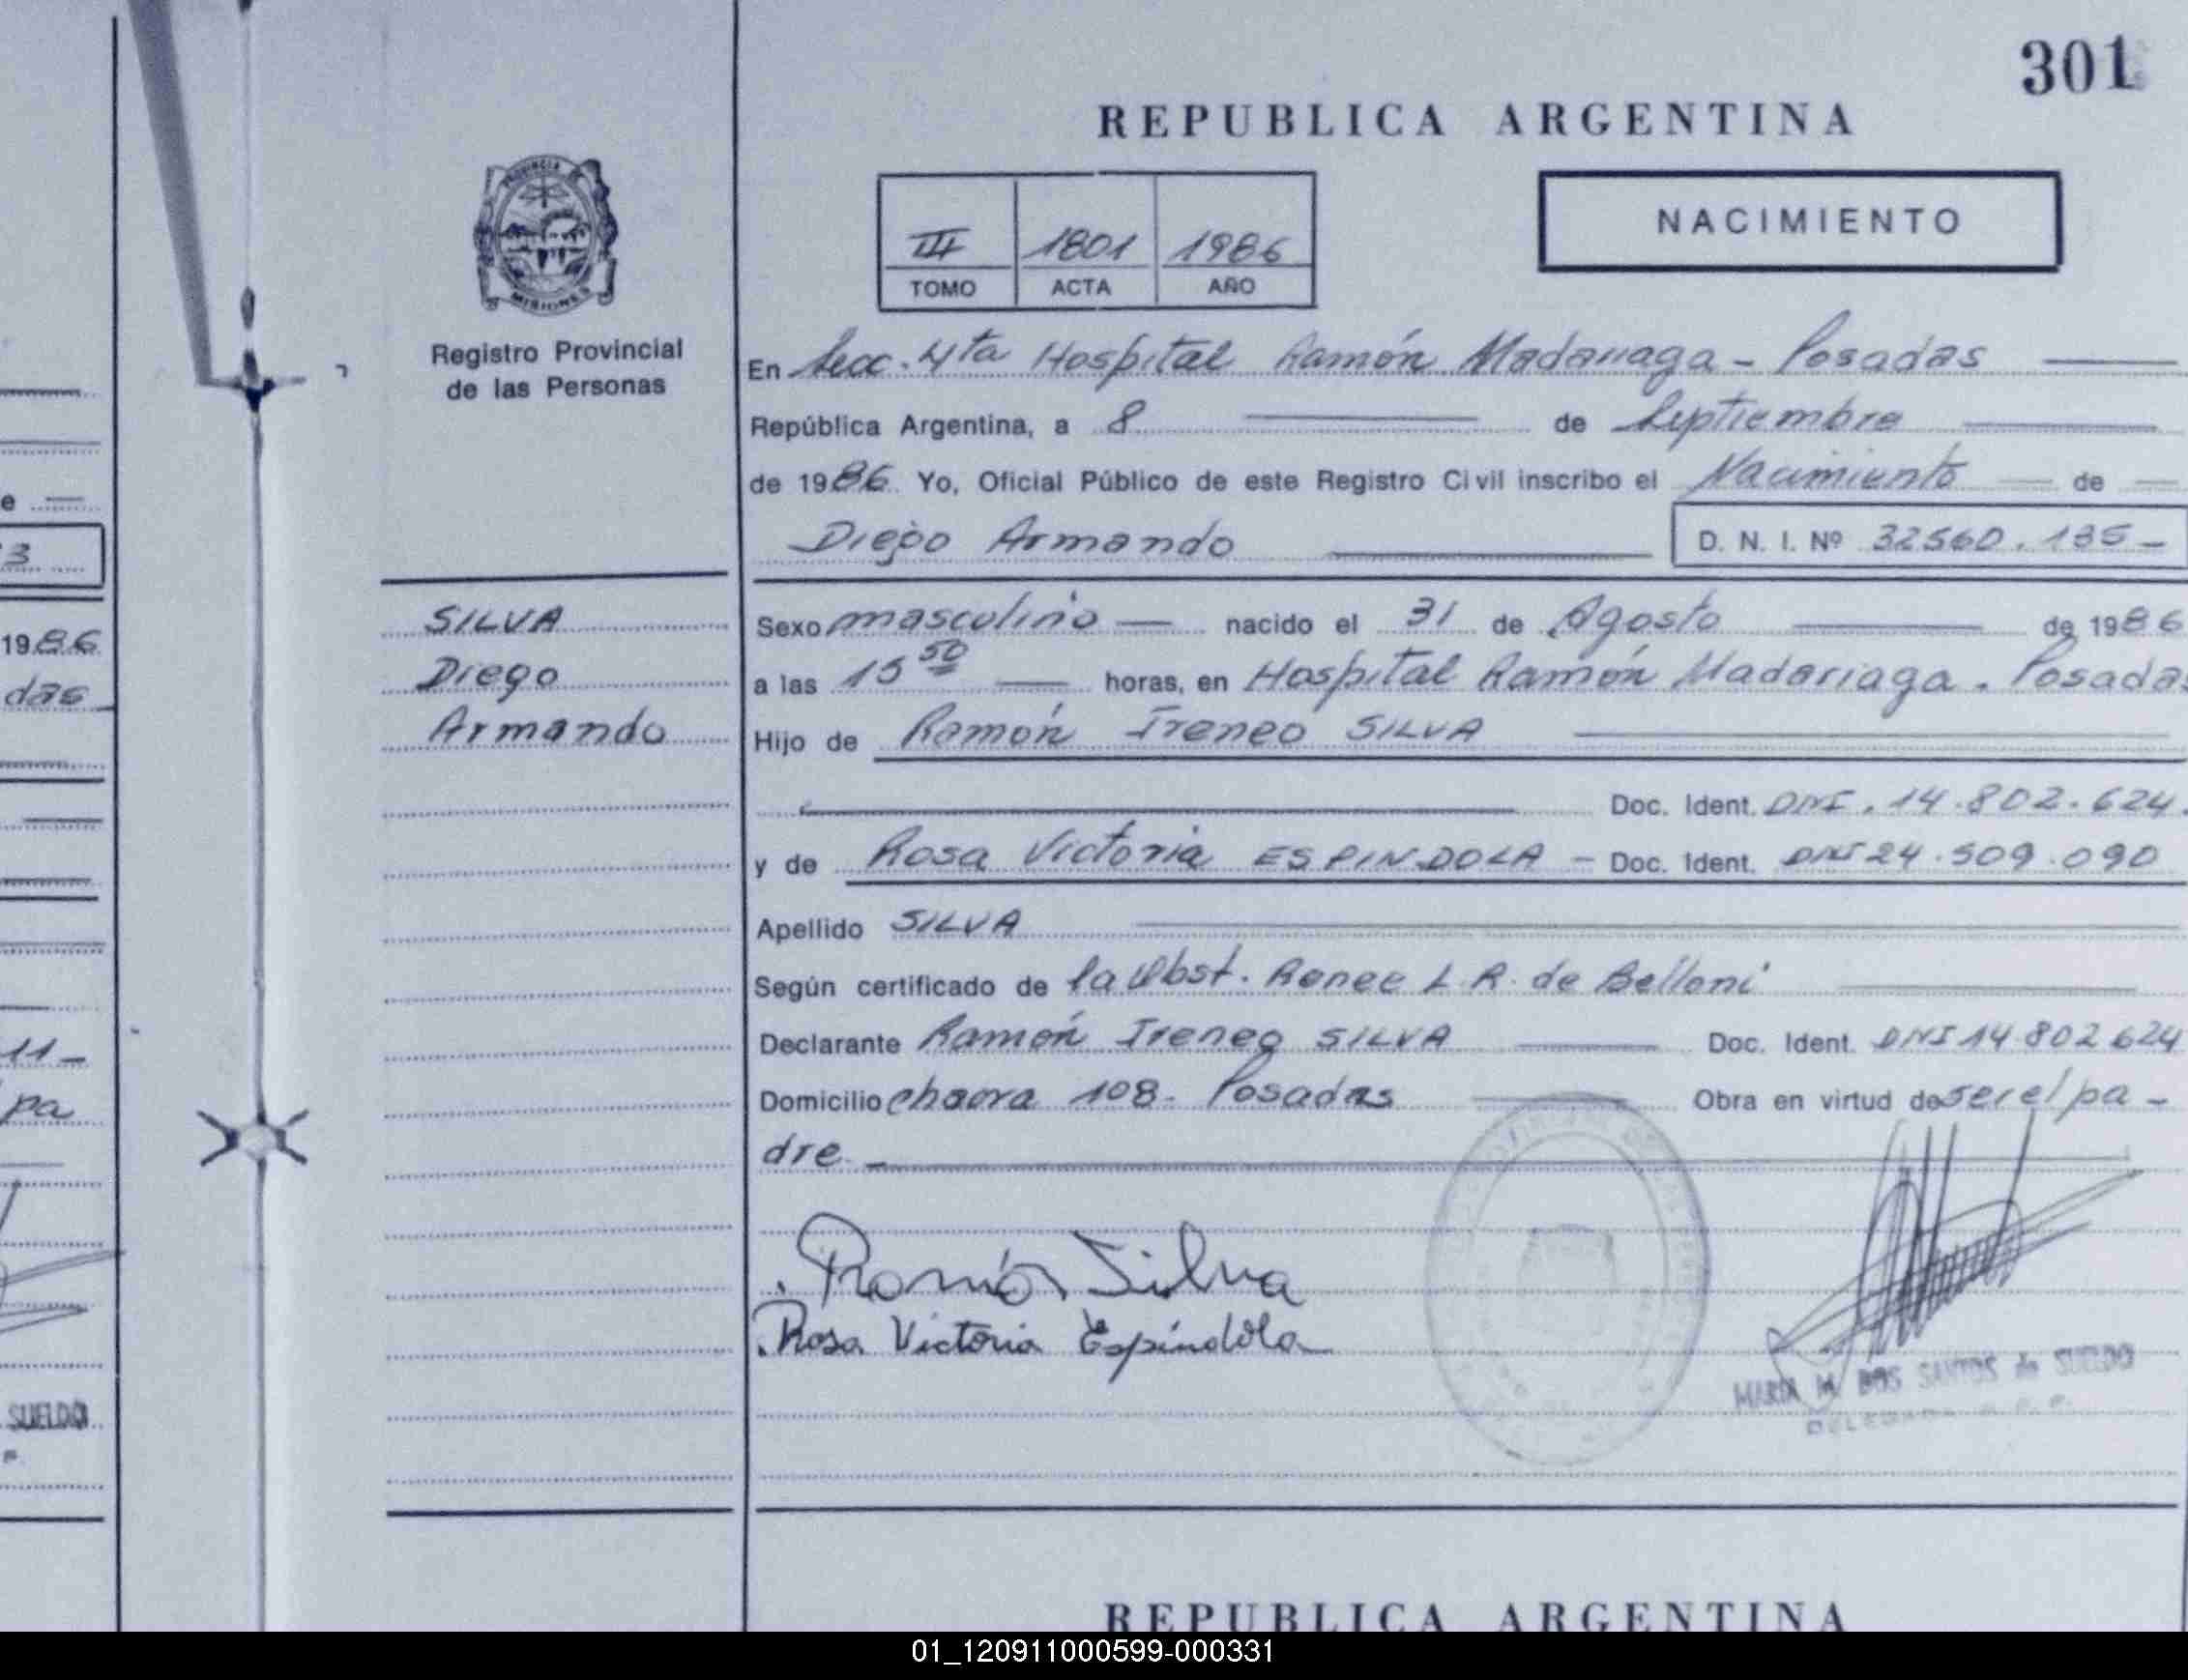 301
REPUBLICA ARGENTINA
NACIMIENTO
III 1801 1986
TOMO ACTA AÑO
PROVINCIA DE
MISIONES
Registro Provincial
de las Personas
En Secc. 4ta Hospital Ramón Madariaga - Posadas
República Argentina, a 8 de Septiembre
de 1986 Yo, Oficial Público de este Registro Civil inscribo el Nacimiento de
Diego Armando D. N. I. Nº 32560.135-
SILVA
Diego
Armando
Sexo masculino nacido el 31 de Agosto de 1986
a las 15 50 horas, en Hospital Ramón Madariaga. Posadas
Hijo de Ramón Ireneo SILVA
Doc. Ident. DNI. 14.802.624.
y de Rosa Victoria ESPINDOLA - Doc. Ident. DNI 24.509.090
Apellido SILVA
Según certificado de la Obst. Renee L. R. de Belloni
Declarante Ramón Ireneo SILVA Doc. Ident. DNI 14.802 624
Domicilio chacra 108- Posadas Obra en virtud de ser el pa-
dre.-
Ramón Silva
Rosa Victoria Espíndola
MARIA M. DOS SANTOS de SUELDO
e
3
1986
das
11-
pa
SUELDO
REPUBLICA ARGENTINA
01_120911000599-000331